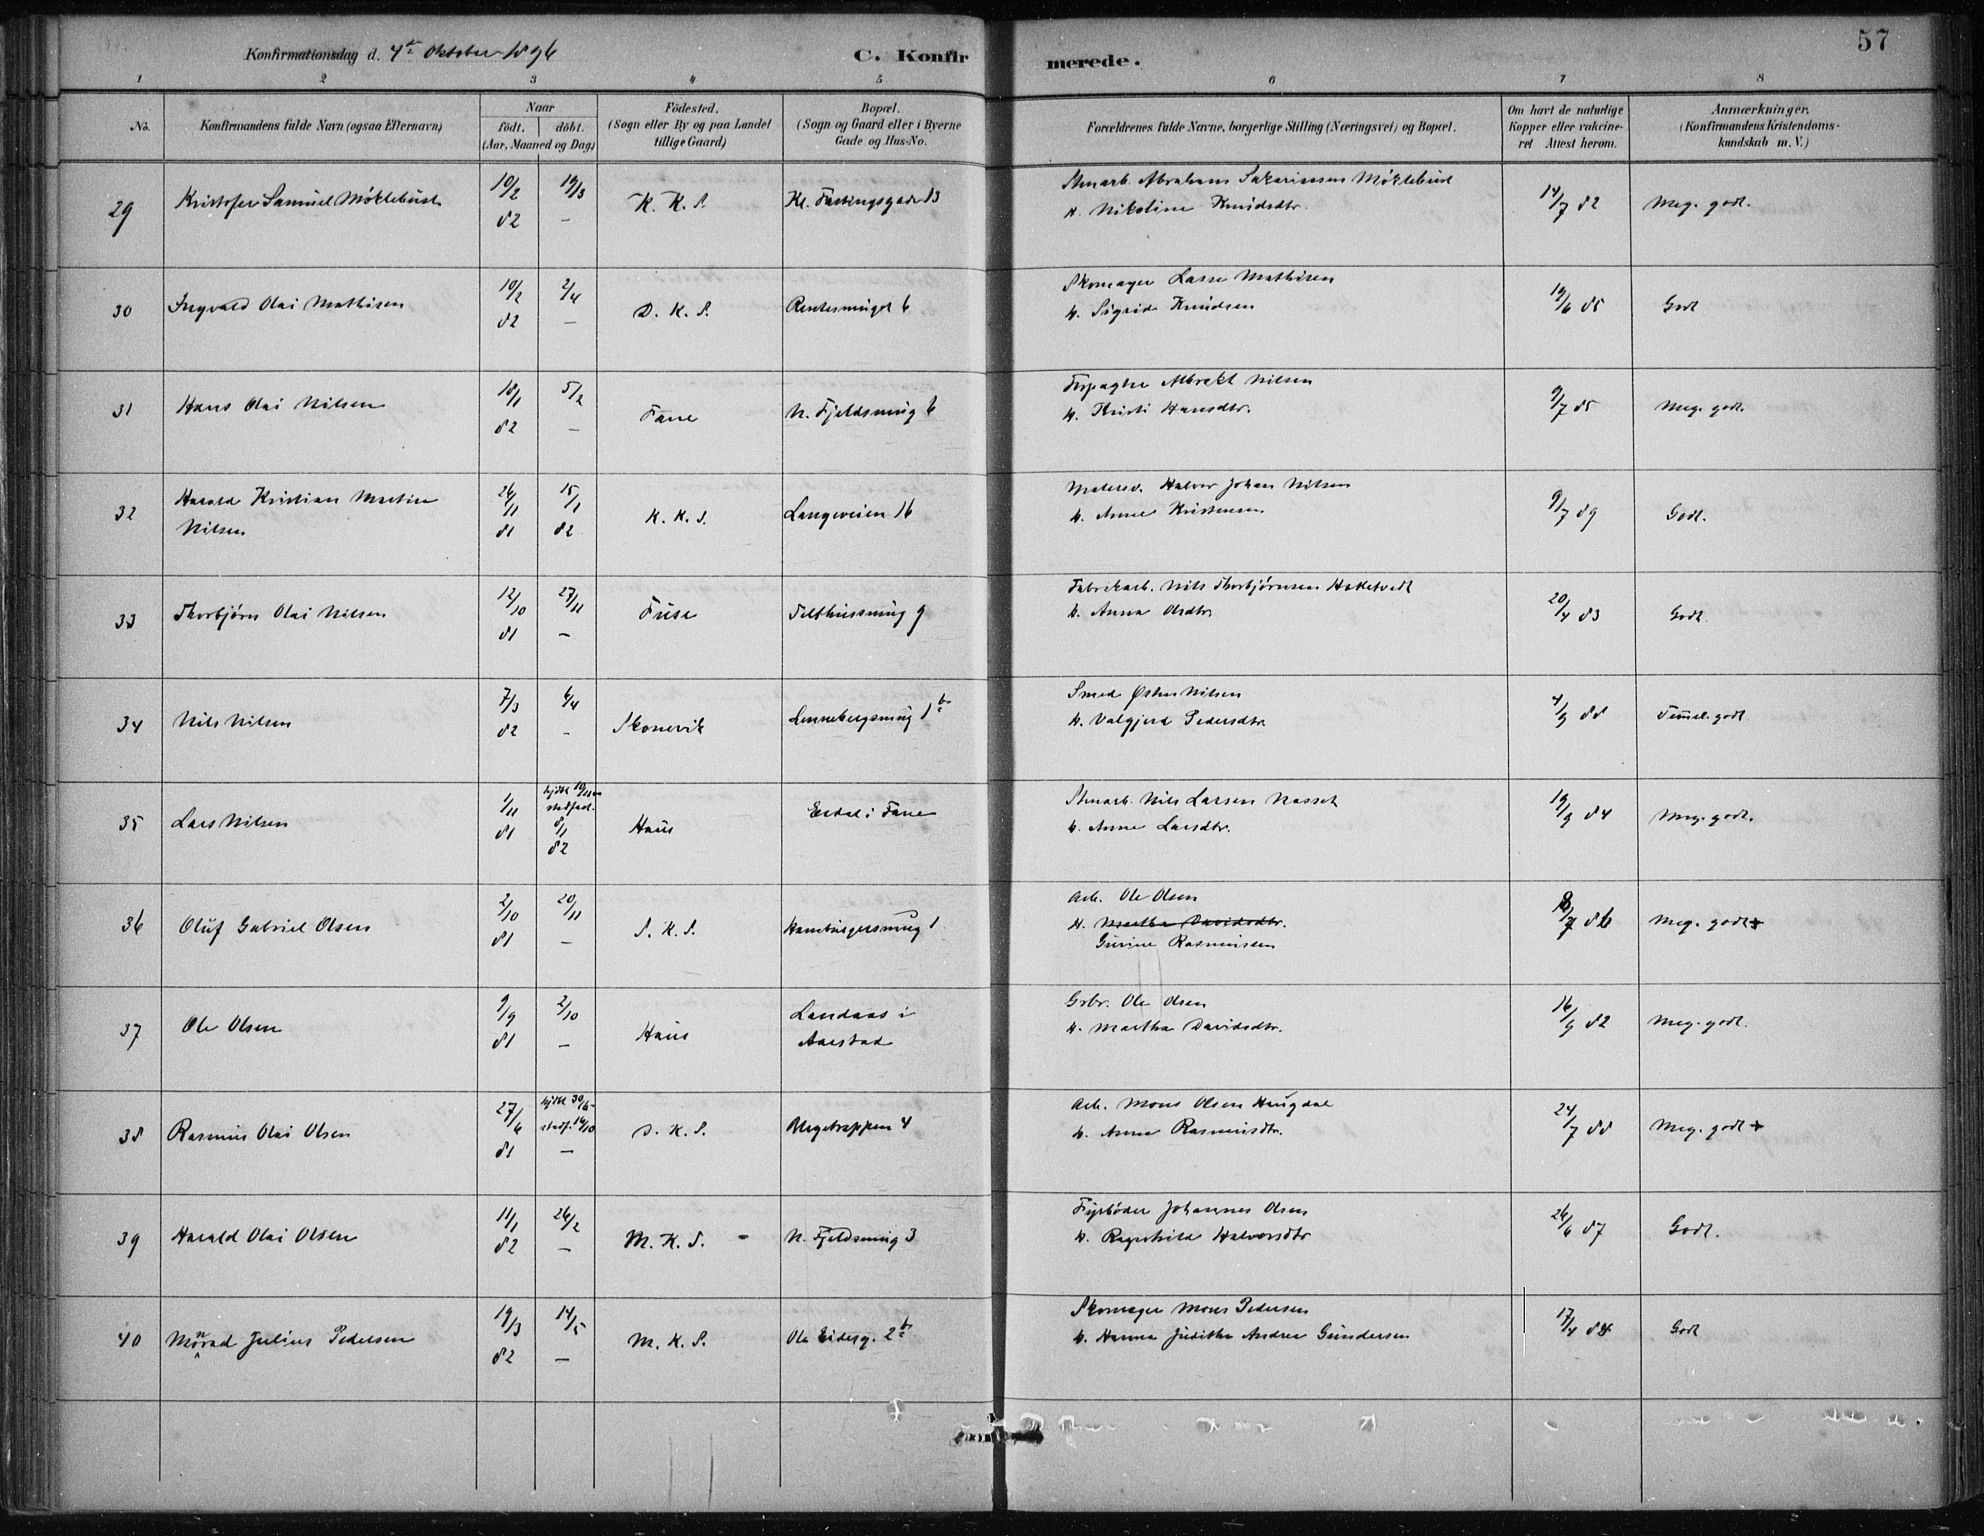 57
Konfirmationsdag d. 4de Oktober 1896
C. Konfirmerede.
1 2 3 4 5 6 7 8
No.
Konfirmandens fulde Navn (ogsaa Efternavn)
Naar
født. døbt.
(Aar, Maaned og Dag)
Fødested.
(Sogn eller By og paa Landet
tillige Gaard)
Bopæl.
(Sogn og Gaard eller i Byerne
Gade og Hus-No.
Forældrenes fulde Navne, borgerlige Stilling (Næringsvei) og Bopæl.
Om havt de naturlige
Kopper eller vakcine-
ret Attest herom.
Anmærkninger.
(Konfirmandens Kristendoms-
kundskab m. V.)
29 Kristofer Samuel Møklebust 10/2 82 19/3 — K. K. S. Kl. Fastingsgade 13 Abraham Sakariassen Møklebust
H. Nikoline Knudsdtr. 14/7 82 Meg. godt.
30 Ingvald Olai Mathisen 10/2 82 2/4 — D. K. S. Rentesmuget 6 Skomager Lasse Mathisen
H. Sigrid Knudsen 12/6 85 Godt
31 Hans Olai Nilsen 18/1 82 5/2 — Fane N. Fjeldsmug 6 Forpagter Albrekt Nilsen
H. Kristi Hansdtr. 9/7 85 Meg. godt.
32 Harald Kristian Martin
Nilsen 26/11 81 15/1 82 K. K. S. Langeveien 16 Malersv. Halvor Johan Nilsen
H. Anne Kristensen 9/7 89 Godt.
33 Thorbjørn Olai Nilsen 12/10 81 27/11 — Fuse Telthussmug 9 Fabrikarb. Nils Thorbjørnsen Haketvedt
H. Anna Olsdtr. 20/4 83 Godt.
34 Nils Nilsen 7/3 82 6/4 - Skonevik Lennebergsmug 1b Smed Østen Nilsen
H. Valgjerd Pedersdtr. 4/9 88 Temmel. godt
35 Lars Nilsen 1/11 81 hjdbt 10/11 stadfæst. 8/1 82 Haus Eidal i Fane Nils Larsen Nasset
H. Anne Larsdtr. 19/9 84 Meg. godt.
36 Oluf Gabriel Olsen 2/10 81 20/11 — S. K. S. Hamburgersmug 1 Arb. Ole Olsen
H. Martha Davidsdtr.
Gurine Rasmussen 86 Meg. godt
37 Ole Olsen 9/9 81 2/10 — Haus Landaas i
Aarstad Grbr. Ole Olsen
H. Martha Davidsdtr. 16/9 82 Meg. godt.
38 Rasmus Olai Olsen 27/6 81 hjdbt 30/6 stadf. 16/10 — D. K. S. Ulegetrappen 4 Arb. Mons Olsen Haugdal
H. Anne Rasmusdtr. 24/7 88 Meg. godt
39 Harald Olai Olsen 11/1 82 26/2 — M. K. S. N. Fjeldsmug 3 Fyrbøder Johannes Olsen
H. Ragnhild Halvorsdtr 26/6 87 Godt.
40 Mønrad Julius Pedersen 19/3 82 14/5 — M. K. S. Ole Eidesg. 2b Skomager Mons Pedersen
H. Hanna Judithe Andrea Gundersen 17/4 Godt